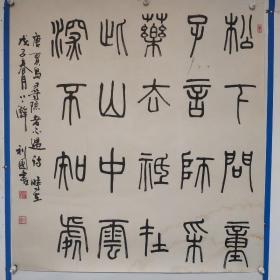 松下問童
子言師采
藥去祗在
此山中雲
深不知處
唐賈島尋隱者不遇詩 時在
戊子春月 利國書